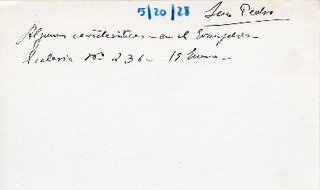 5/20/28 San Pedro
Algunas características - en el Evangelio -
No 236 - 19 Enero -